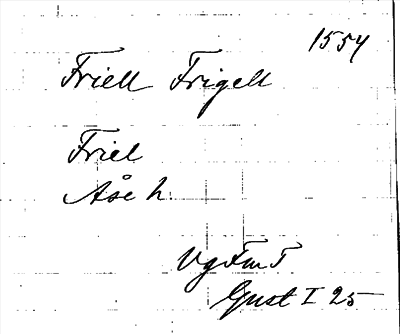 1554
Friell Frigell
Friel
Åse h.
VgFmT
Gust I 25